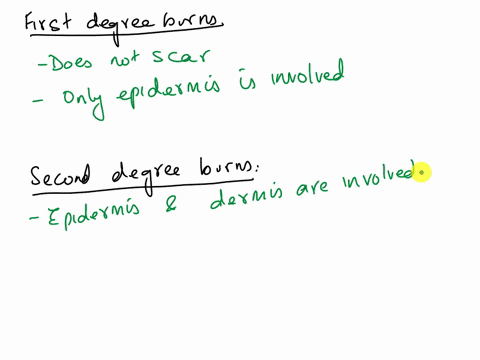 First degree burns.
- Does not scar
- Only epidermis is involved
Second degree burns:
- Epidermis & dermis are involved.